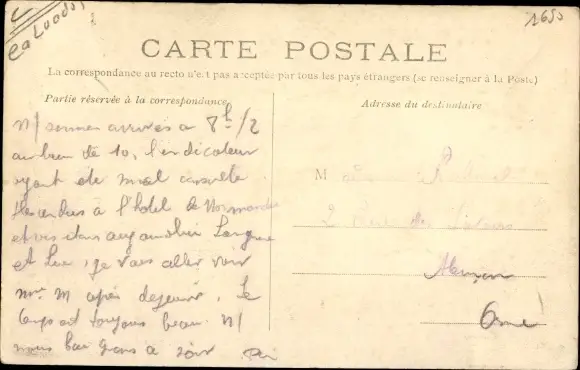 1655
CARTE POSTALE
La correspondance au recto n'est pas acceptée par tous les pays étrangers (se renseigner à la Poste)
Partie réservée à la correspondance
Adresse du destinataire
N/ sommes arrivés à 8h 1/2
au lieu de 10, l'indicateur
ayant été mal consulté
descendus à l'hotel de Normandie
et aujourd'hui
et je vais aller voir
Mme M après dejeuner. Le
temps est toujours beau. N/
à soir
M
2 Rue des
Alençon
Orne